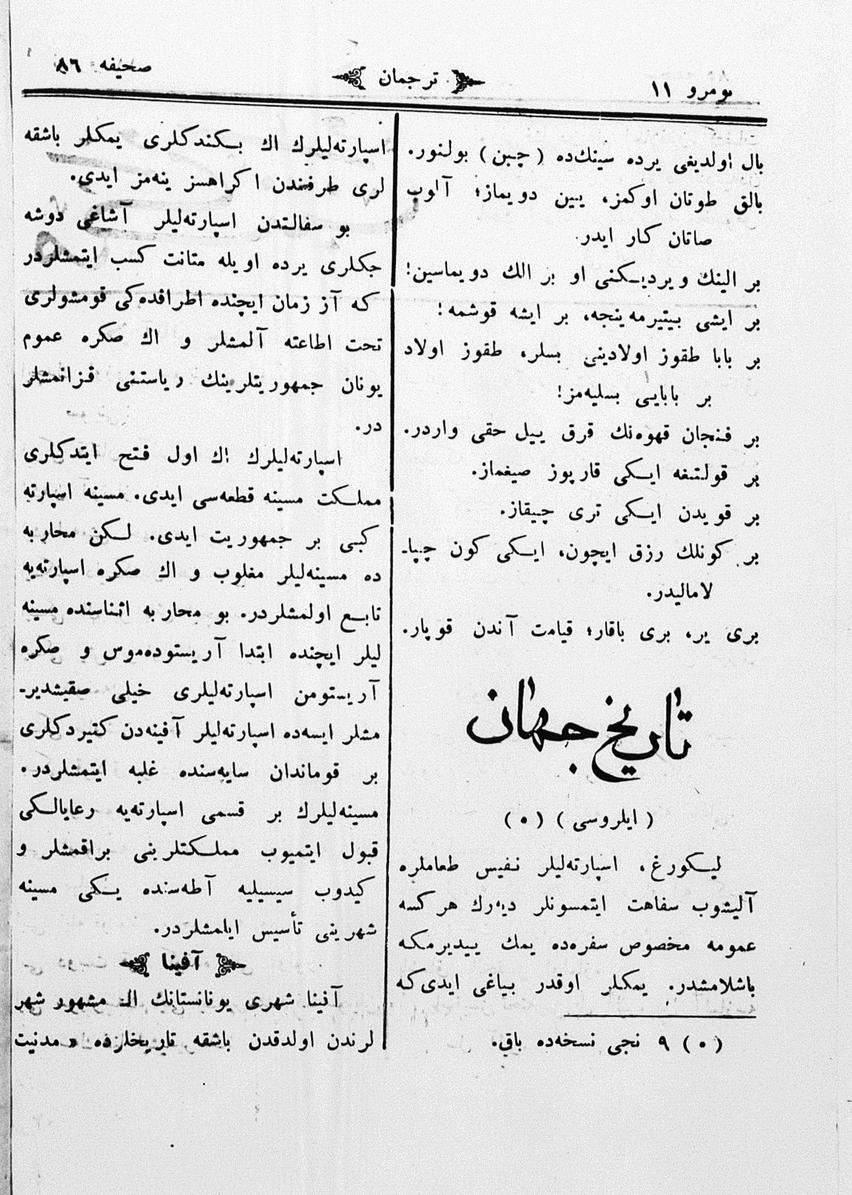 نومرو ١١
ترجمان
صحیفه ٨٦
بال اولدیغی یرده سینك‌ده (چبن) بولنور.
بالق طوتان اوكمز، ییین دویماز؛ آلوب
صاتان كار ایدر.
بر الینك ویردیكنی او بر الك دویماسین!
بر ایشی بیتیرمه‌ینجه، بر ایشه قوشمه!
بر بابا طقوز اولادینی بسلر، طقوز اولاد
بر بابایی بسلیه‌مز!
بر فنجان قهوه‌نك قرق ییل حقی واردر.
بر قولتغه ایكی قارپوز صیغماز.
بر قویدن ایكی تری چیقاز.
بر كونلك رزق ایچون، ایكی كون چپا-
لامالیدر.
بری یر، بری باقار؛ قیامت آندن قوپار.
تاریخ جهان
(ایلروسی) (٥)
لیكورغ، اسپارته‌لیلر نفیس طعاملره
آلیشوب سفاهت ایتمسونلر دیه‌رك هركسه
عمومه مخصوص سفره‌ده یمك ییدیرمكه
باشلامشدر. یمكلر اوقدر بیاغی ایدی‌كه
(٥) ٩ نجی نسخه‌ده باق.
اسپارته‌لیلرك اك بكندكلری یمكلر باشقه
لری طرفندن اكراهسز ینه‌مز ایدی.
بو سفالتدن اسپارته‌لیلر آشاغی دوشه
جكلری یرده اویله متانت كسب ایتمشلردر
كه آز زمان ایچنده اطرافده‌كی قومشولری
تحت اطاعته آلمشلر و اك صكره عموم
یونان جمهوریتلرینك ریاستنی قزانمشلر
در.
اسپارته‌لیلرك اك اول فتح ایتدكلری
مملكت مسینه قطعه‌سی ایدی. مسینه اسپارته
كبی بر جمهوریت ایدی. لكن محاربه
ده مسینه‌لیلر مغلوب و اك صكره اسپارته‌یه
تابع اولمشلردر. بو محاربه اثناسنده مسینه
لیلر ایچنده ابتدا آریستوده‌موس و صكره
آریستومن اسپارته‌لیلری خیلی صقیشدیر-
مشلر ایسه‌ده اسپارته‌لیلر آفینه‌دن كتیردكلری
بر قوماندان سایه‌سنده غلبه ایتمشلردر.
مسینه‌لیلرك بر قسمی اسپارته‌یه رعایالكی
قبول ایتمیوب مملكتلرینی براقمشلر و
كیدوب سیسیلیه آطه‌سنده یكی مسینه
شهرینی تأسیس ایلمشلردر.
آفینا
آفینا شهری یونانستانك اك مشهور شهر
لرندن اولدقدن باشقه تاریخلرده مدنیت